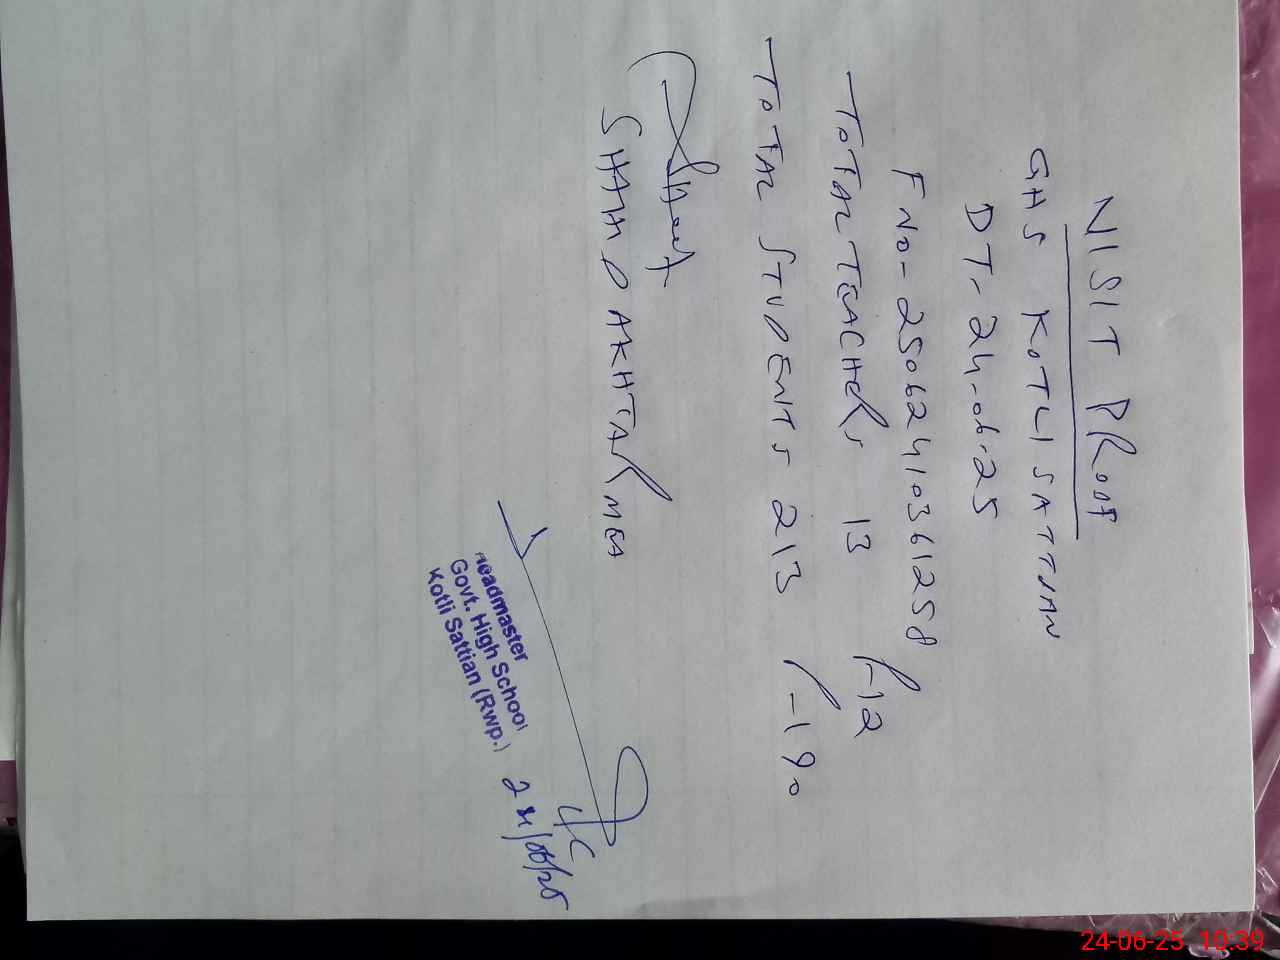 NISIT PROOF
GHS KOTLI SATTIAN
DT- 24-06-25
FNO- 25062410361258
TOTAL TEACHERS 13 P-12
TOTAL STUDENTS 213 P-190
AKHTAR MEA
Headmaster
Govt. High School
Kotli Sattian (Rwp.)
I/C
24/06/25
24-06-25 10:39